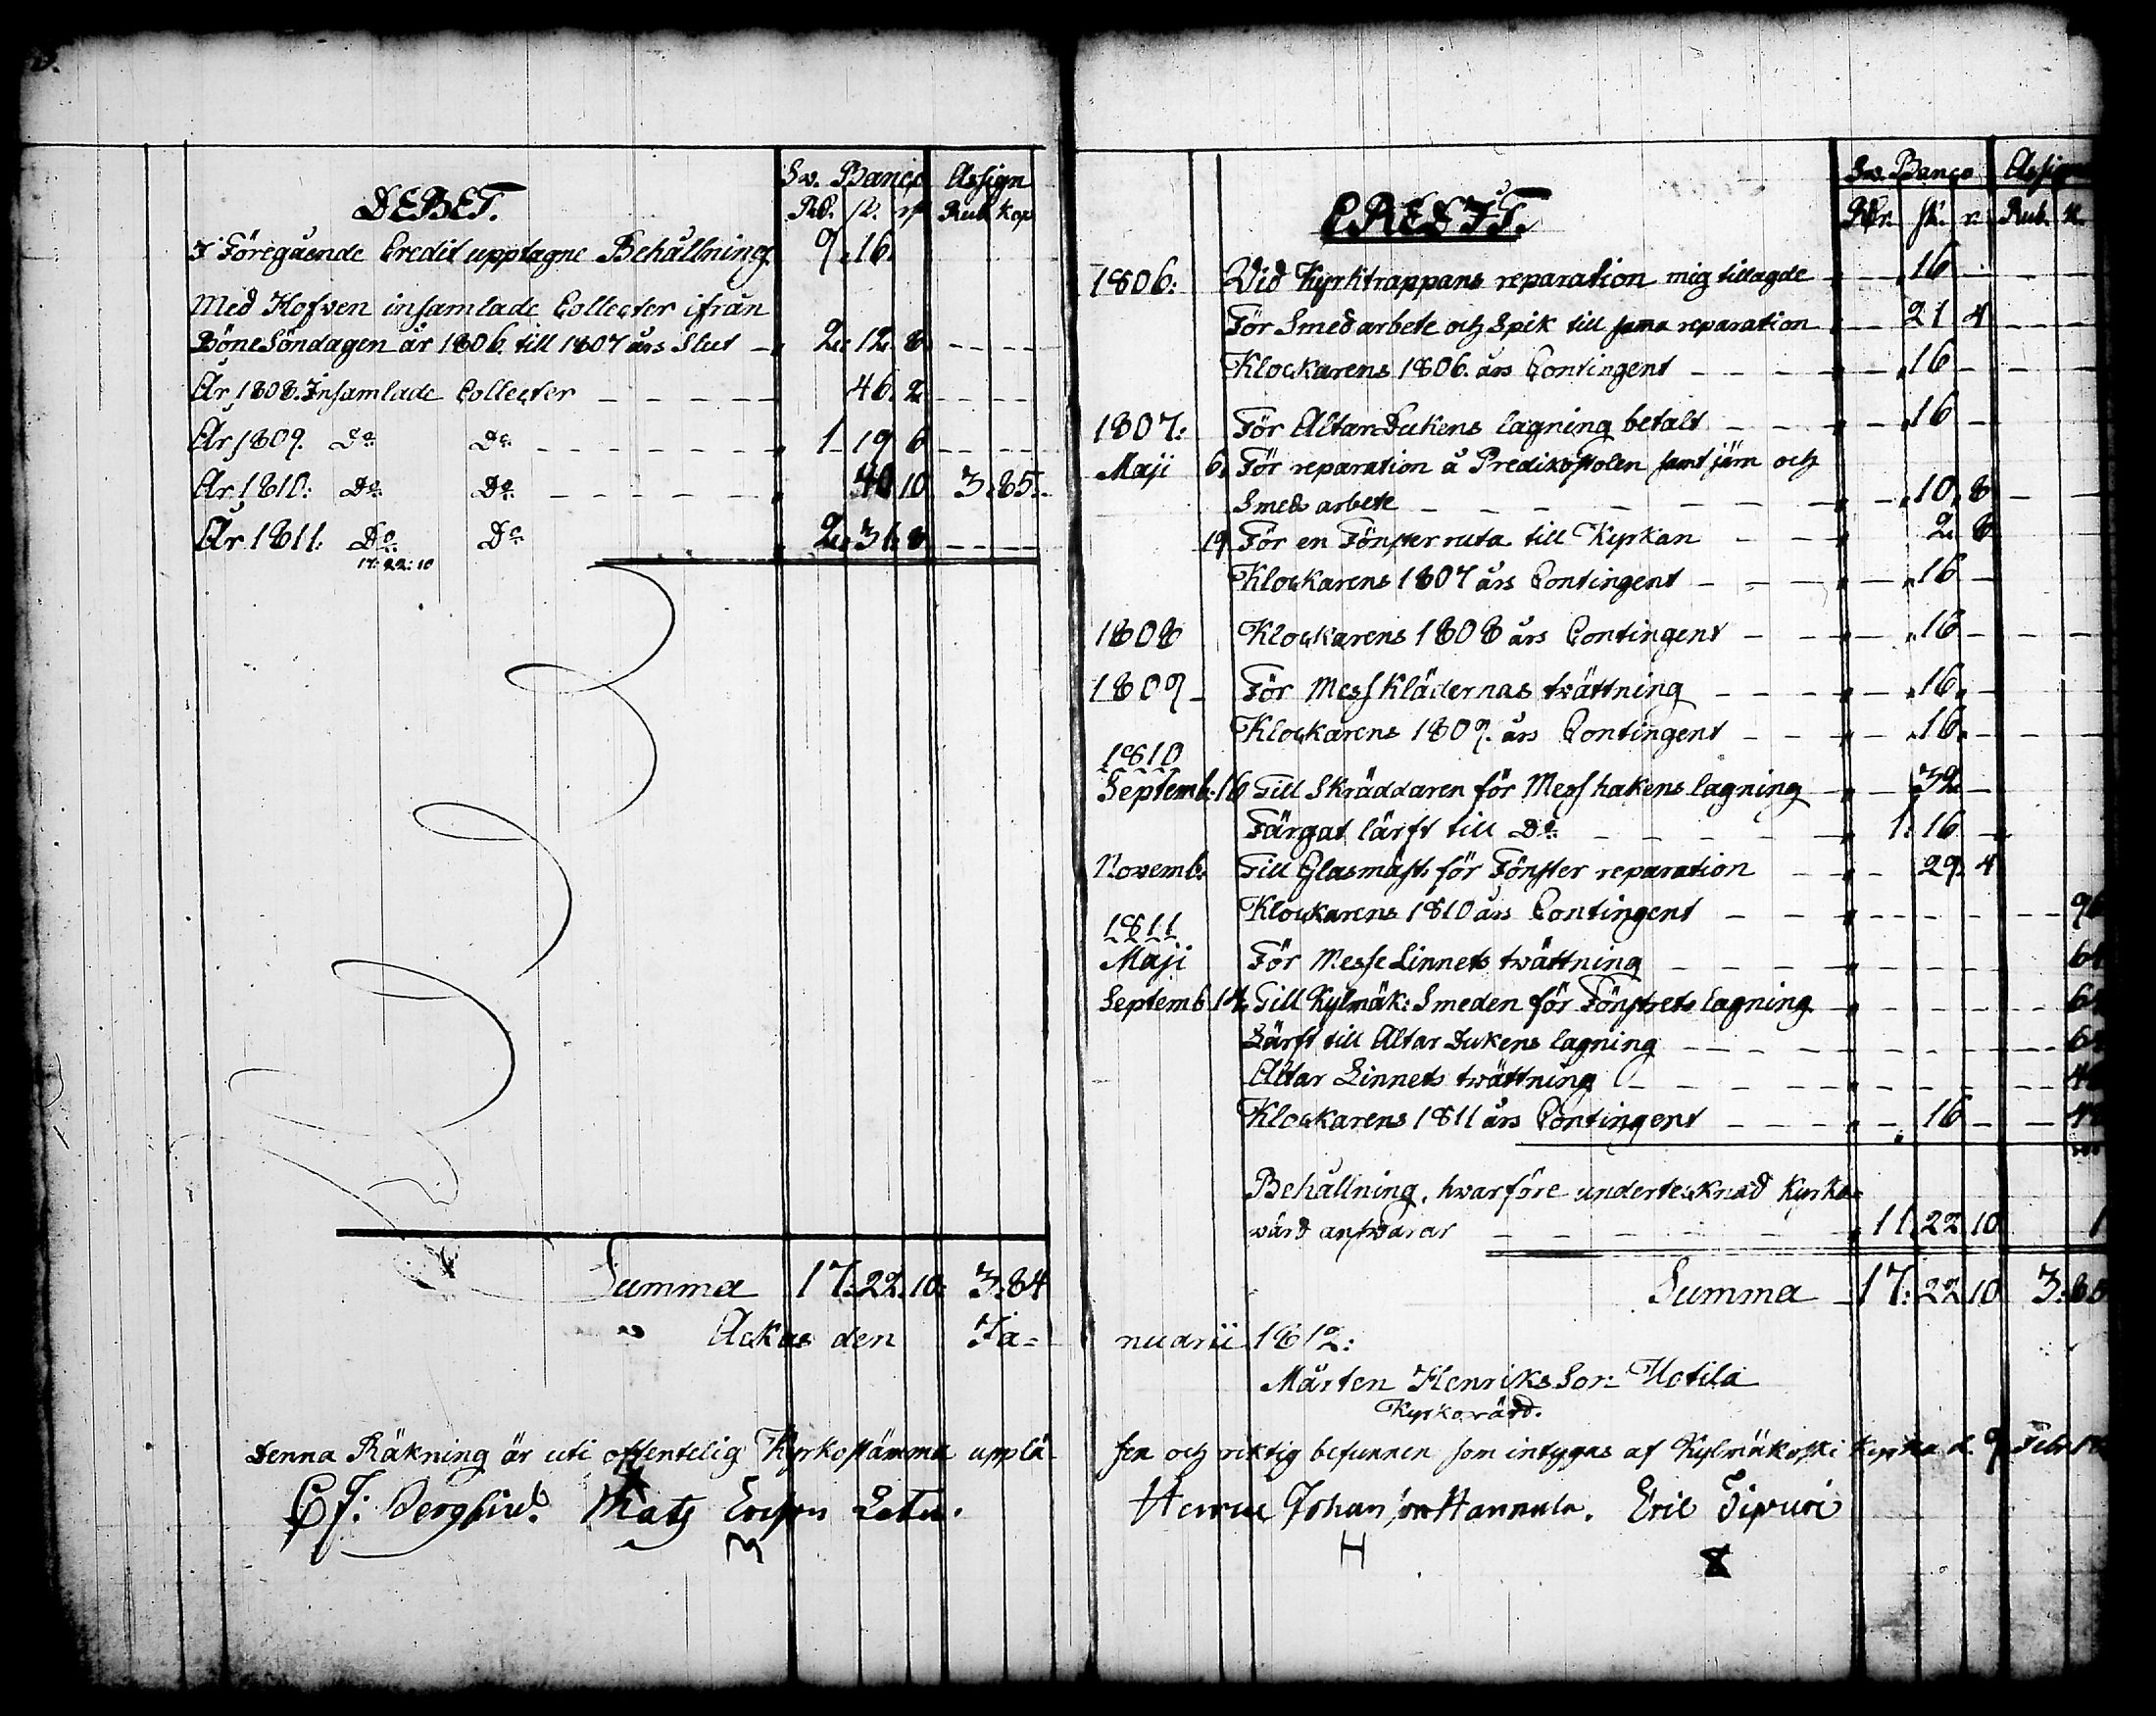 DEBET.
Sw. Banco Assign
Rd. sk. rst Rub. kop
I Föregående Credit upptagne Behållning 9. 16.
Med Hofven insamlade Collecter ifrån
BöneSöndagen år 1806. till 1807 års Slut 2. 12. 8.
År 1808. Insamlade Collecter 46. 2
År 1809. Do Do 1 19 6
År 1810: Do Do 40 10 3. 85.
År 1811: Do Do 2. 31. 8
17: 22: 10
Summa 17: 22. 10: 3: 84
Ackas den Ja=
Denna Räkning är uti offentelig Kyrkostämma upplä
Matz Ericsson
CREDIT.
Sw. Banco
Rdr. sk. r. Rub. K.
1806: Vid Kyrktrappans reparation mig tillagde 16
För Smed arbete och Spik till samma reparation 21 4
Klockarens 1806. års Contingent 16
1807: För Altar-Dukens lagning betalt 16
Maji 6. För reparation å Predikostolen samt järn och
Smeds arbete 10. 8
19 För en Fönster ruta till Kyrkan 2. 8
Klockarens 1807 års Contingent 16
1808 Klockarens 1808 års Contingent 16
1809 För Mess Klädernas twättning 16.
Klockarens 1809. års Contingent 16.
1810
Septemb. 16 Till Skräddaren för Mess hakens lagning 32
Färgat lärft till Do 1. 16
Novemb. Till Glasmäst. för Fönster reparation 29. 4
Klockarens 1810 års Contingent
1811
Maji För Messe Linnets twättning
Septemb. 14. Till Kylmäk: Smeden för Fönstrets lagning
Lärft till Altar Dukens lagning
Altar Linnets twättning
Klockarens 1811 års Contingent 16
Behållning, hwarföre undertecknad Kyrko=
wärd answarar 11. 22 10 1
Summa 17: 22 10 3: 85
nuarii 1812:
Mårten Henriks Son Uotila
Kyrkowärd.
sen och riktig befunnen som intygas af Kylmäkoski Kyrka d. 9 Febr.
Johansson Hannula. Eric
H